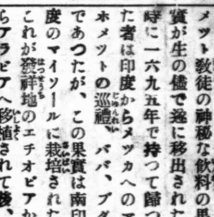 メツト敎徒の神秘な飲料の
實が生の儘で遂に移出され
時に一六九五年で持つて歸つ
た者は印度からメツカへのマ
ホメツトの巡禮、ババ、ブダ
であつたが、この果實は南印
度のマイソールに栽培された
これが發祥地のエチオピアか
らアラビアへ移植されて後、